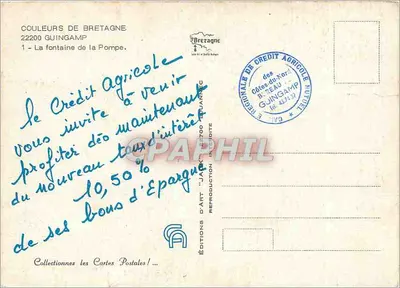 COULEURS DE BRETAGNE
22200 GUINGAMP
1 - La fontaine de la Pompe.
Bretagne
le Crédit Agricole
vous invite à venir
profiter dès maintenant
du nouveau taux d'intérêt
10,50 %
de ses bons d'Epargne
CAISSE RÉGIONALE DE CRÉDIT AGRICOLE MUTUEL
des
Côtes-du-Nord
BUREAU
GUINGAMP
EDITIONS D'ART "JACK"
CA
PHIL
Collectionnez les Cartes Postales !...